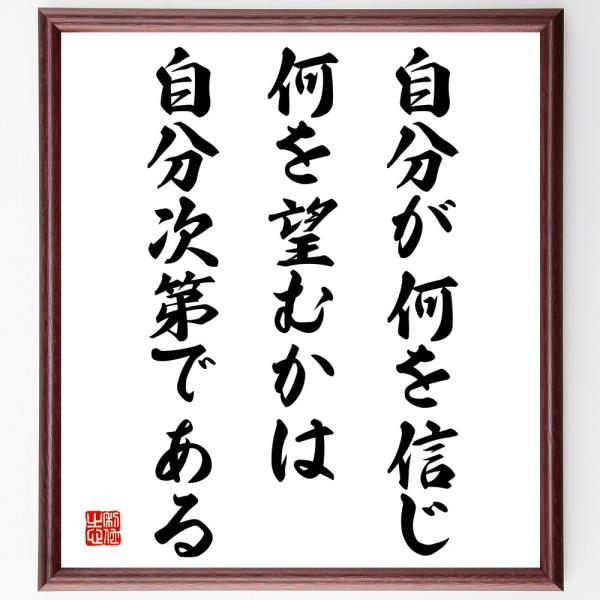 自分が何を信じ
何を望むかは
自分次第である